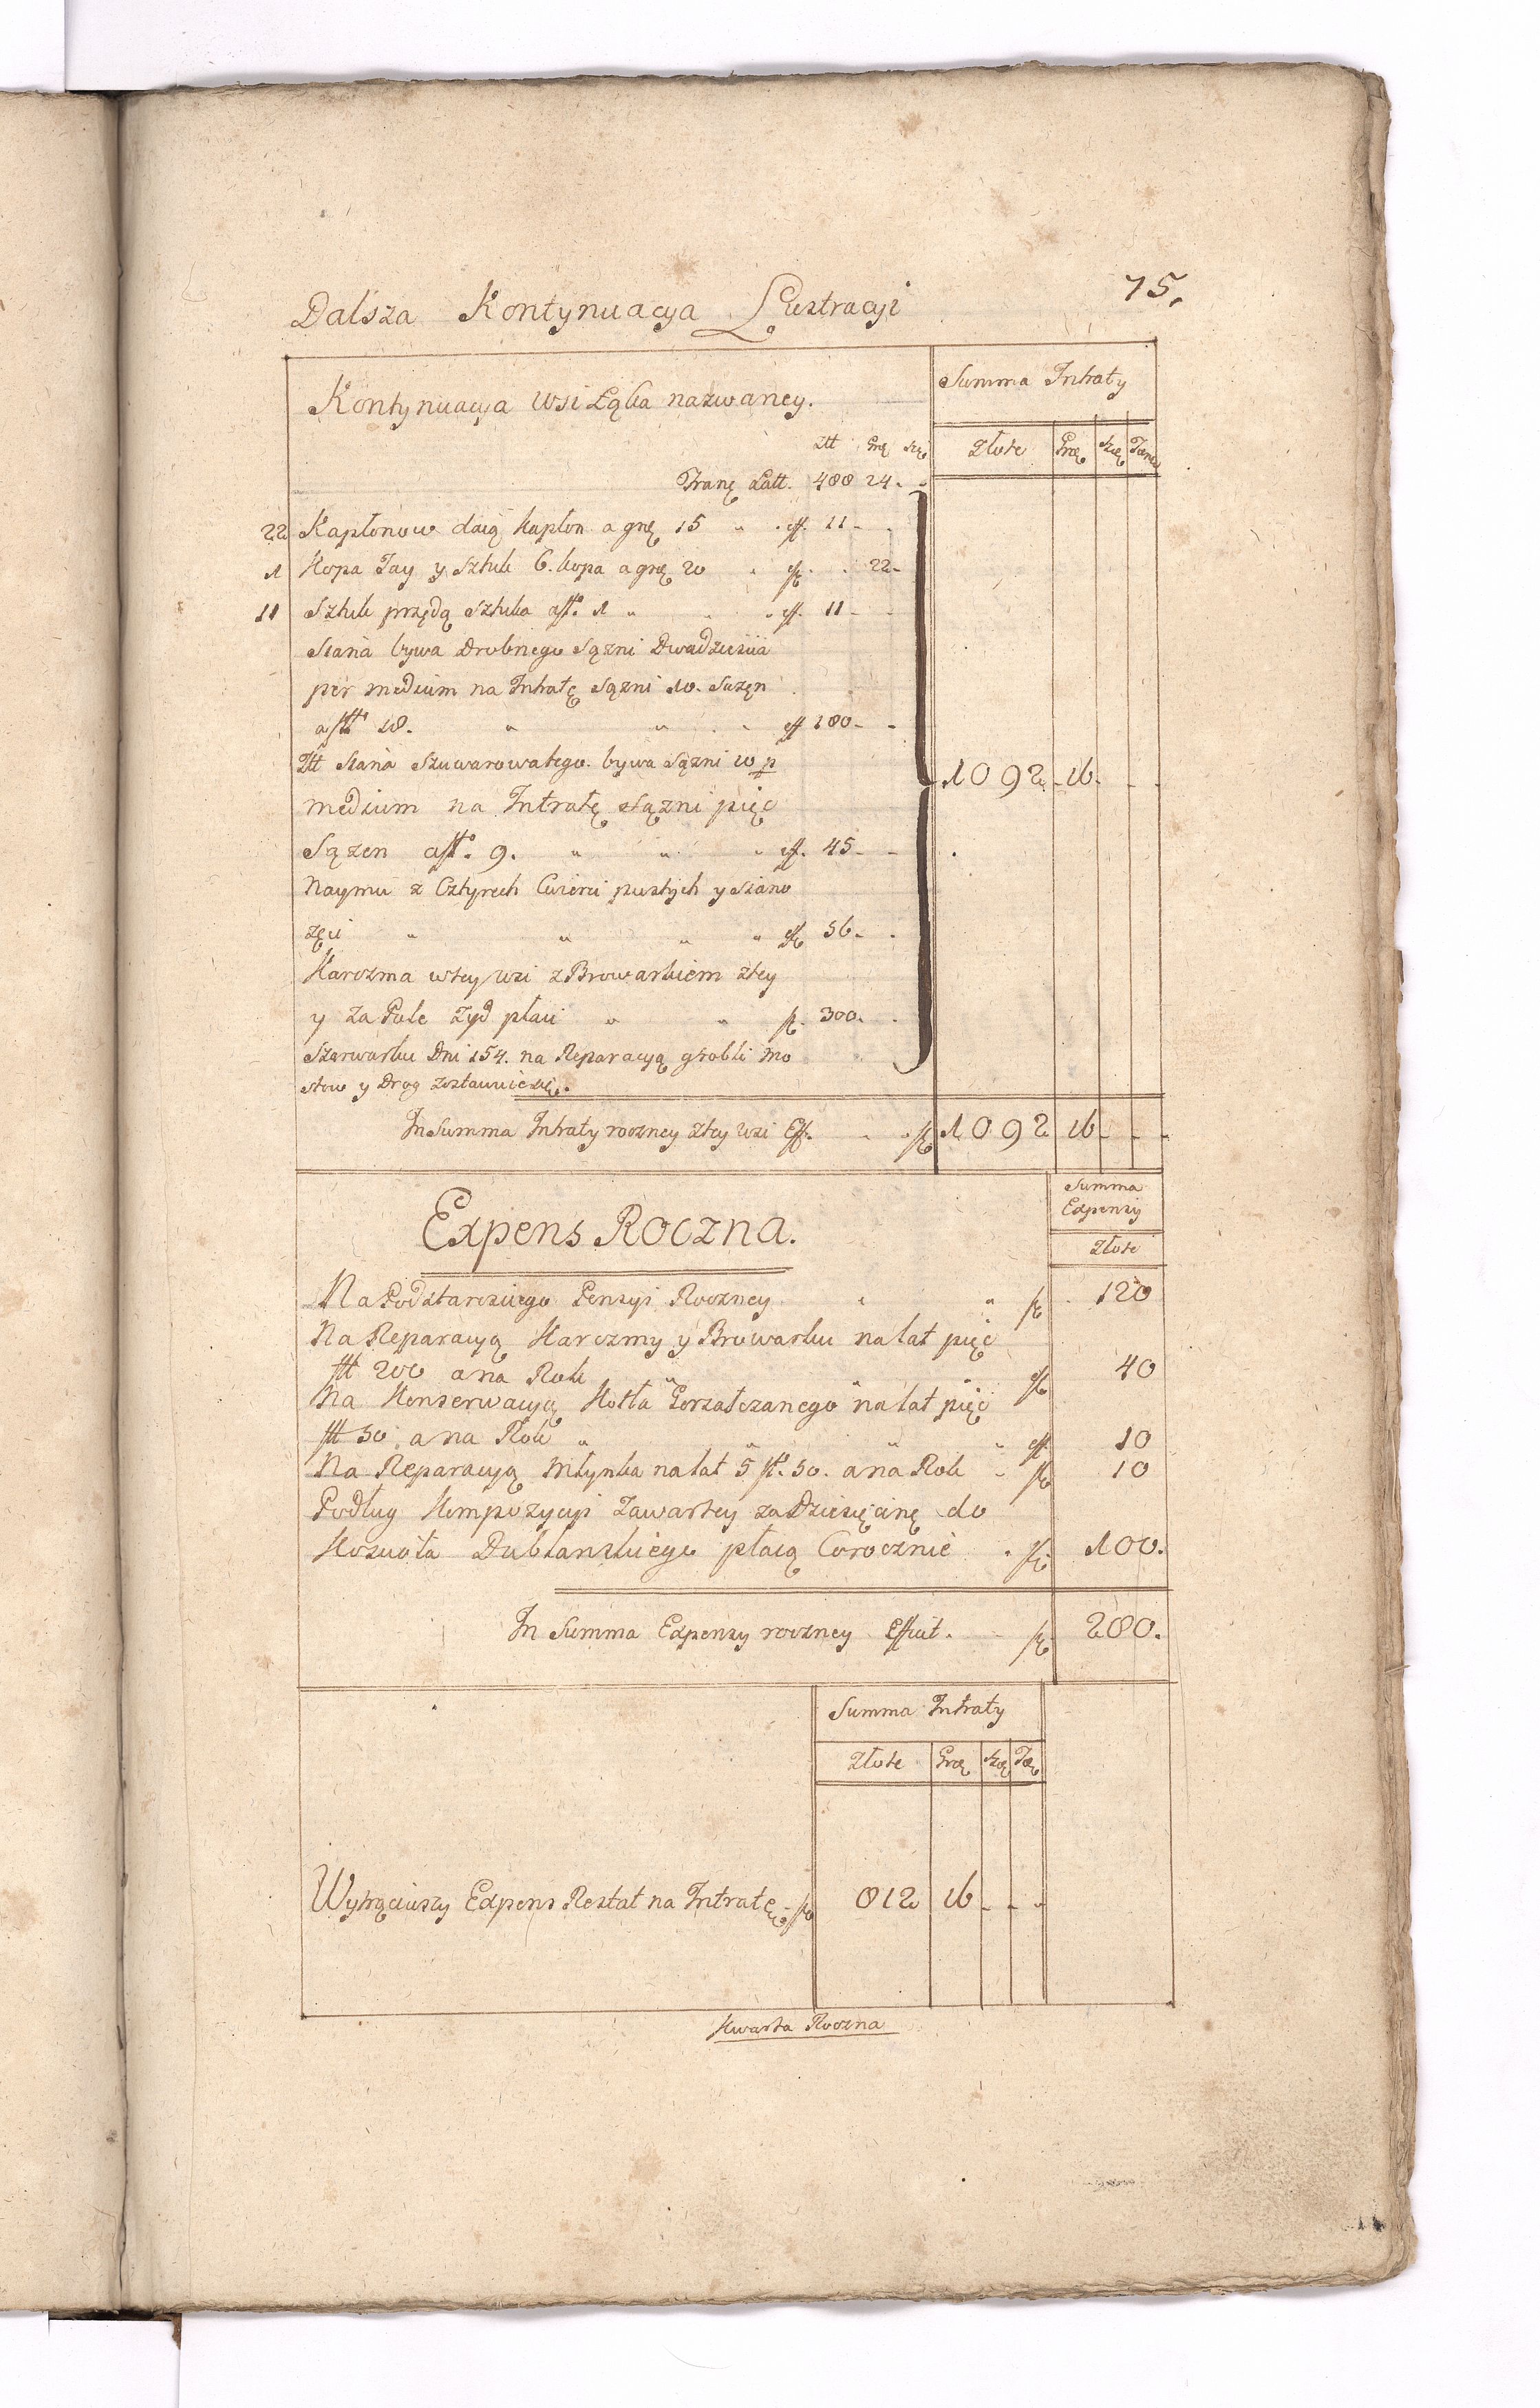 75.
Dalsza Kontynuacya Lustracyi
Kontynuacya wsi Łąka nazwaney.
Summa Intraty
Złłt Grę Szę
Złote Grę Szę
Tranę Łatt. 488 24. -
22 Kapłonow daią kapłon a grę 15 " . eff. 11 - .
1 Kopa Jay y Sztuk 6. kopa a grę 20 . . . 22 -
11 Sztuk przędą Sztuka a fł. 1 " . eff. 11 - -
Siana bywa Drobnego Sązni Dwadziescia
per medium na Intratę Sązni 10. Sązen
a fłł 18. " " . eff 180 - -
Złłt Siana Szuwarowatego bywa Sązni 10 p
medium na Intratę Sązni pięć
Sązen a fłł. 9. " " " eff. 45 - -
Naymu z Cztyrech Cwierci pustych y Siano
zęci " " " " 56 - .
Karczma w tey wsi z Browarkiem ztey
y za Pole Żyd płaci " " fł. 300. .
Szarwarku Dni 154. na Reparacyą grobli mo
stow y Drog zostawuie się.
1092 - 16 - - -
In Summa Intraty roczney ztey wsi Eff. . . fł 1092 16 - - -
Summa
Expensy
Expens Roczna.
Złote
Na Podstarosciego Pensyi Roczney " " fł 120
Na Reparacyą Karczmy y Browarku na lat pięć
fłł 200 a na Rok " " 40
Na Konserwacyą Kotła Gorzałczanego na lat pięć
fłł 50 a na Rok " " " " eff. 10
Na Reparacyą Młynka na lat 5 fł. 50. a na Rok - fł 10
Podług Kompozycyi Zawartey za Dziesięcinę do
Koscioła Dublanskiego płacą Corocznie . fł. 100.
In Summa Expensy roczney Efficit. - fł 280.
Summa Intraty
Złote Grę Szę
Wytrąciwszy Expens Restat na Intratę - fł 812 16 - - -
Kwarta Roczna